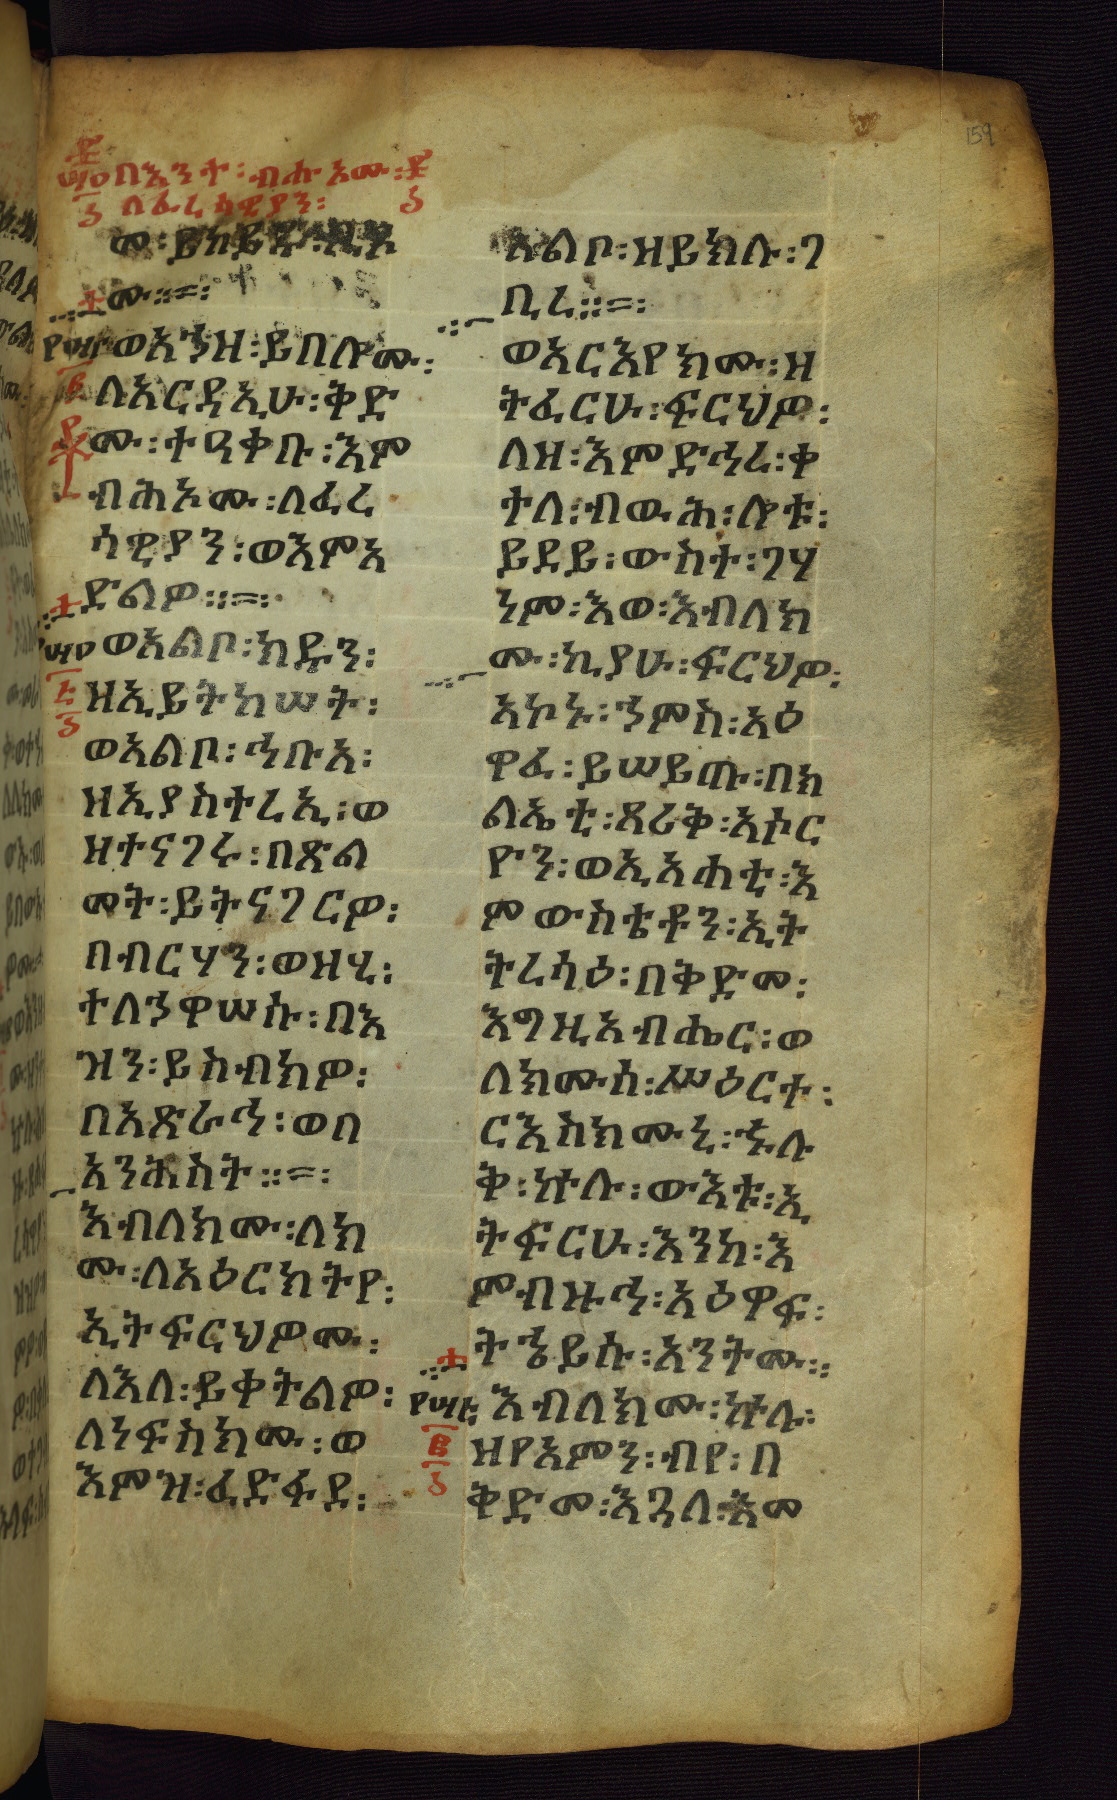 159
በእንተ፡ ብሑእሙ፡
ለፈሪሳዊያን፡
መ፡ይከይዱ፡
ሙ።=፡
ወእንዘ፡ይበሎሙ፡
ለአርዳኢሁ፡ቅድ
ሙ፡ተዓቀቡ፡እም
ብሕኦሙ፡ለፈሪ
ሳዊያን፡ወእምአ
ድልዎ።=፡
ወአልቦ፡ክዱን፡
ዘኢይትከሠት፡
ወአልቦ፡ኅቡእ፡
ዘኢያስተርኢ፡ወ
ዘተናገሩ፡በጽል
መት፡ይትናገርዎ፡
በብርሃን፡ወዘሂ፡
ተለኅዋሠሱ፡በእ
ዝን፡ይሰብክዎ፡
በአጽራኅ፡ወበ
አንሕስት።=፡
እብለክሙ፡ለክ
ሙ፡ለአዕርክትየ፡
ኢትፍርህዎሙ፡
ለእለ፡ይቀትልዎ፡
ለነፍስክሙ፡ወ
እምዝ፡ፈድፋደ፡
አልቦ፡ዘይክሉ፡ገ
ቢረ።=፡
ወአርእየክሙ፡ዘ
ትፈርሁ፡ፍርህዎ፡
ለዘ፡እምድኅረ፡ቀ
ተለ፡ብዉሕ፡ሎቱ፡
ይደይ፡ውስተ፡ገሃ
ነም፡እወ፡እብለክ
ሙ፡ኪያሁ፡ፍርህዎ፡
አኮኑ፡ኀምስ፡አዕ
ዋፈ፡ይሠይጡ፡በክ
ልኤቲ፡ጸሪቅ፡አሶር
ዮን፡ወኢአሐቲ፡እ
ምውስቴቶን፡ኢት
ትረሳዕ፡በቅድመ፡
እግዚአብሔር፡ወ
ለክሙሰ፡ሥዕርተ፡
ርእስክሙኒ፡ኍሉ
ቅ፡ኵሉ፡ውእቱ፡ኢ
ትፍርሁ፡እንከ፡እ
ምብዙኅ፡አዕዋፍ፡
ትኄይሱ፡አንትሙ።
እብለክሙ፡ኵሉ፡
ዘየአምን፡ብየ፡በ
ቅድመ፡እጓለ፡እመ